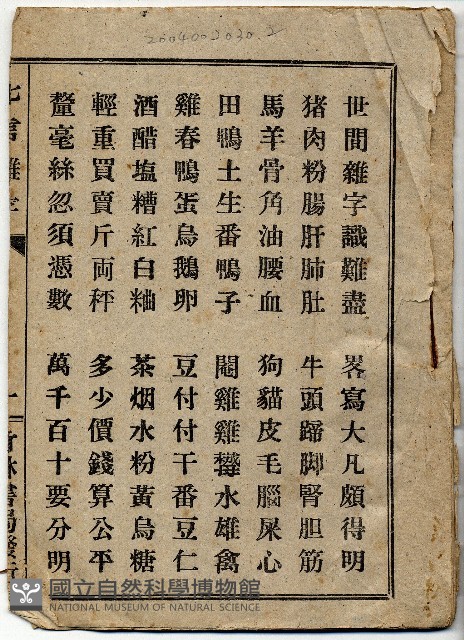 2004003030.2
世間雜字識難盡 畧寫大凡頗得明
猪肉粉腸肝肺肚 牛頭蹄脚腎胆筋
馬羊骨角油腰血 狗貓皮毛腦屎心
田鴨土生番鴨子 閹雞雞健水雄禽
雞春鴨蛋烏鵝卵 豆付付干番豆仁
酒醋塩糟紅白粬 茶烟水粉黃烏糖
輕重買賣斤両秤 多少價錢算公平
釐毫絲忽須憑數 萬千百十要分明
七言雜字 一 竹林書局發行
國立自然科學博物館
NATIONAL MUSEUM OF NATURAL SCIENCE